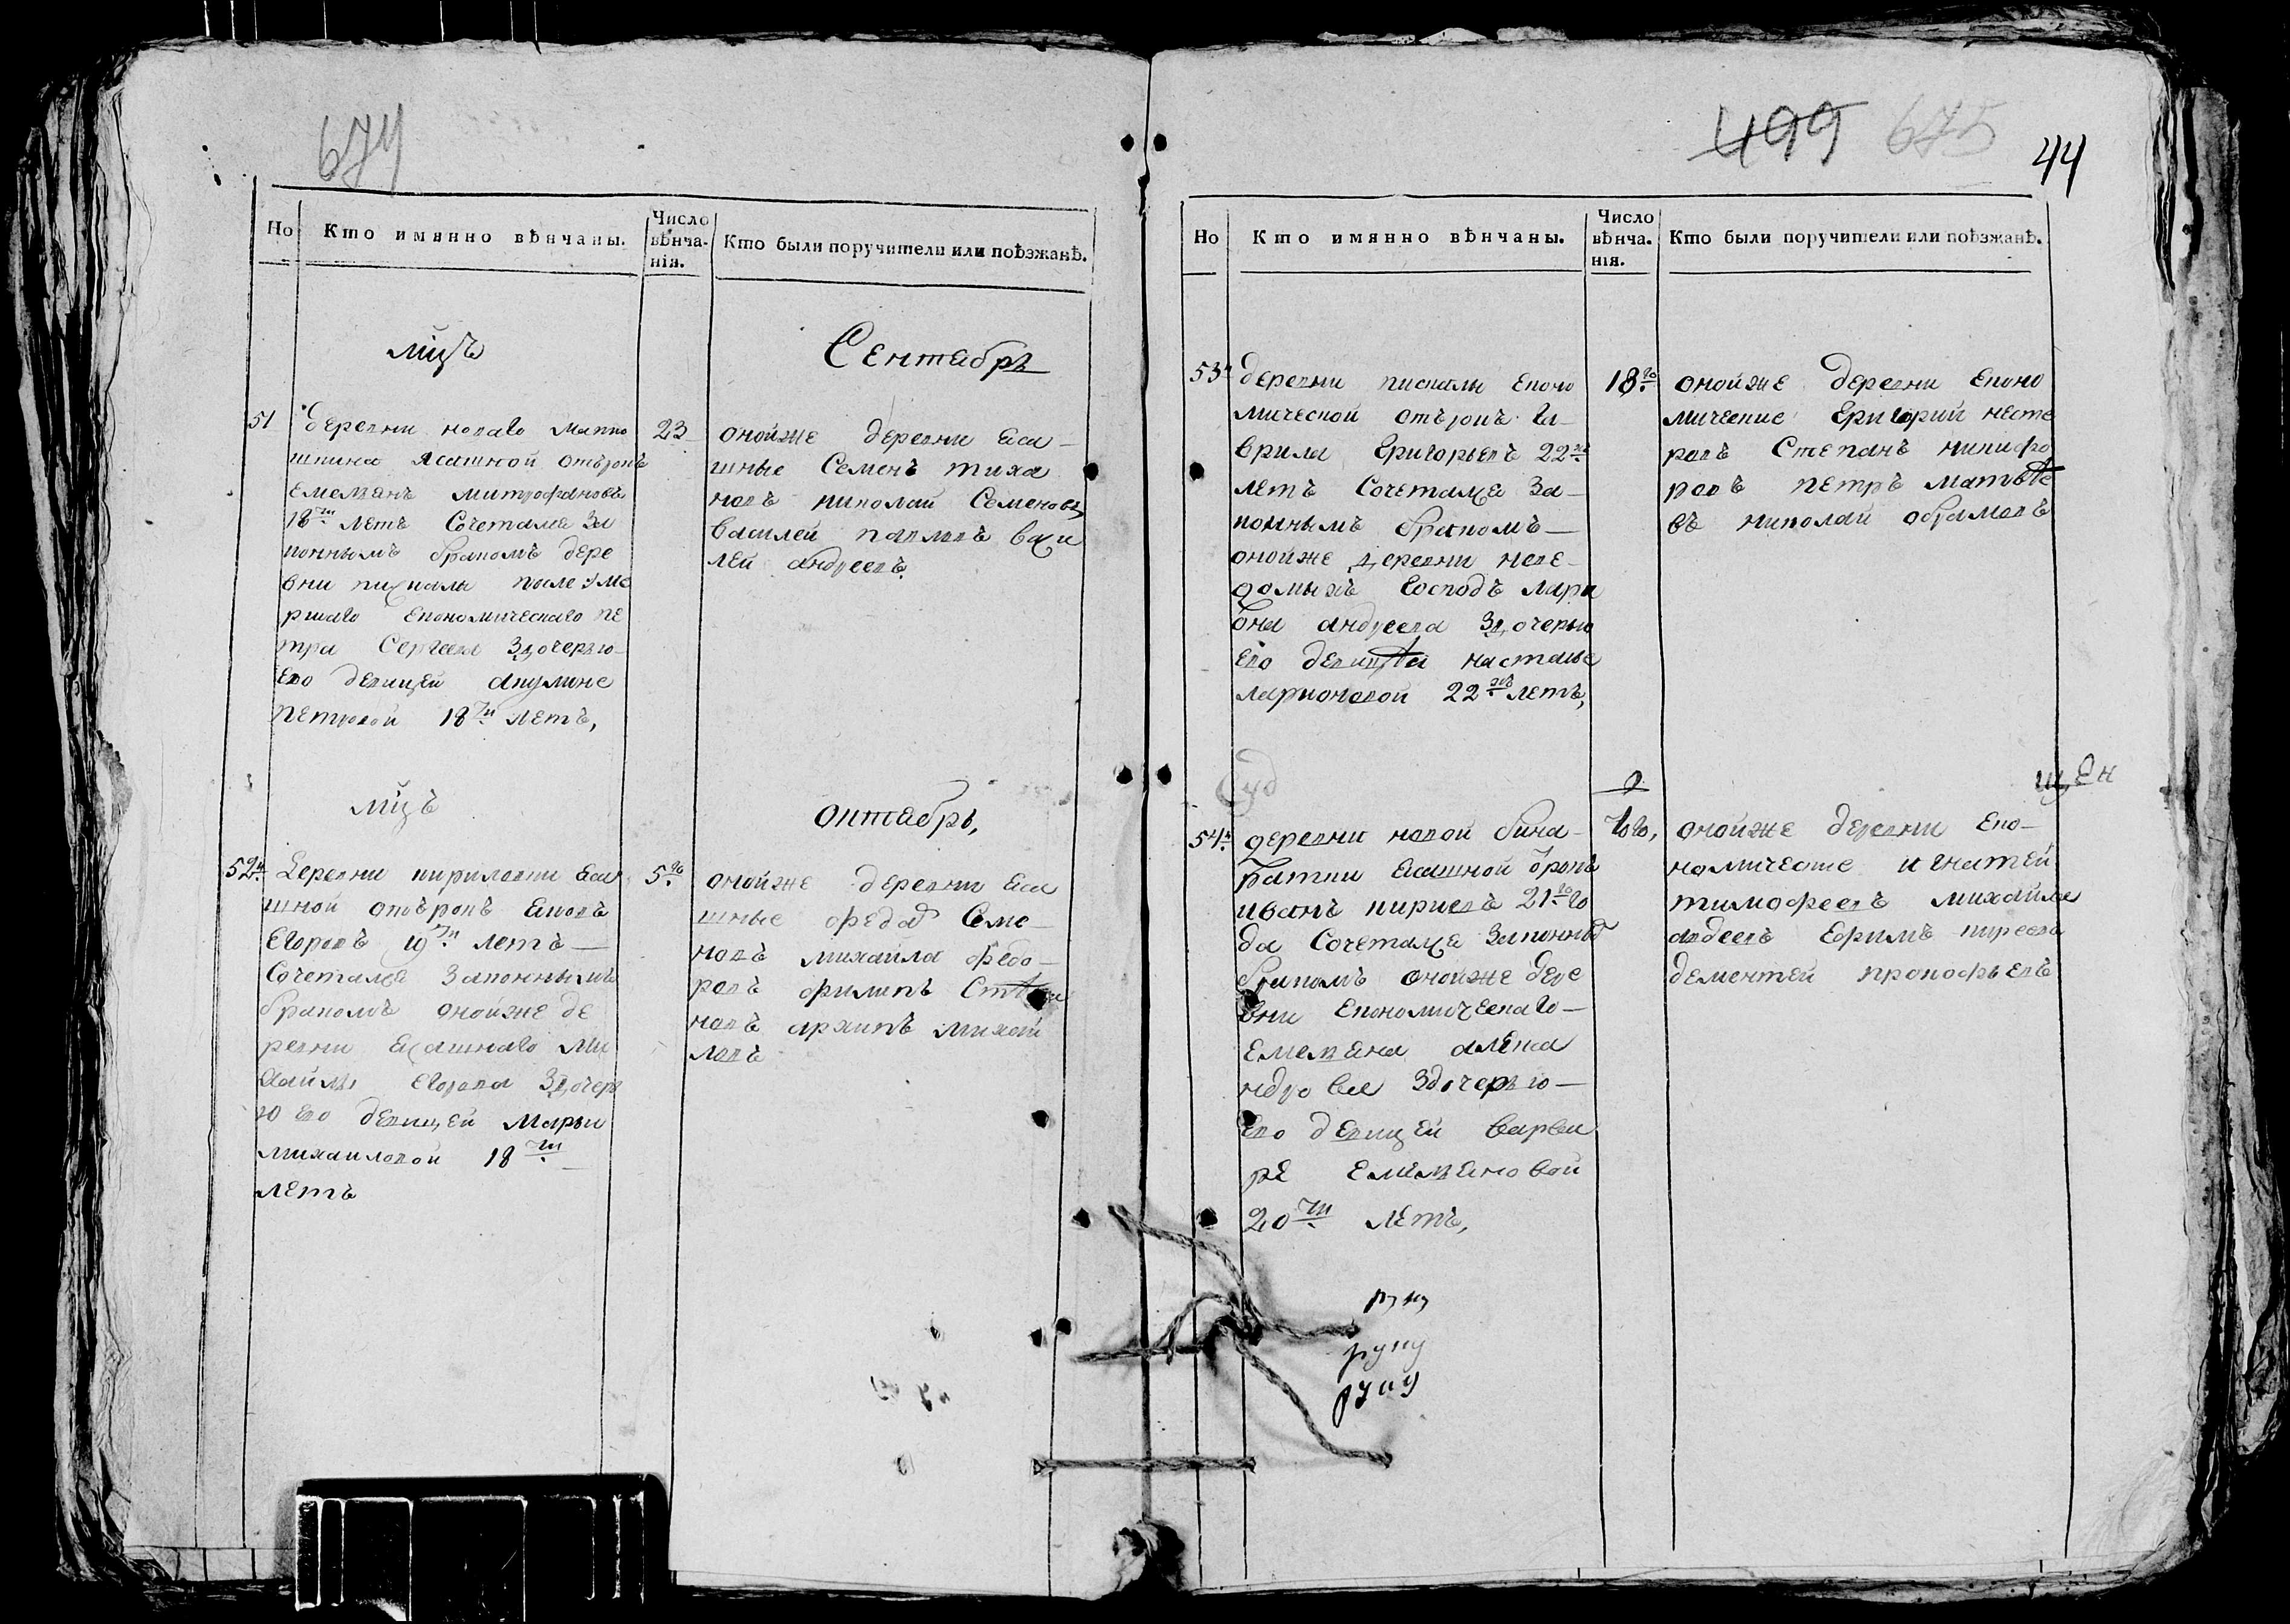 674
Но
Кто имянно вѣнчаны.
Число вѣнча- нія.
Кто были поручители или поѣзжанѣ.
мцъ
Сентябрь
51
деревни новаго макко
шкина ясашной отърокъ
емельянъ митрофановъ
18ти летъ Сочетался За
коннымъ бракомъ дере
вни пискалы после уме
ршаго Економическаго пе
тра Сергеева Здочерью
Ево девицей акулине
петровой 18ти летъ,
23
онойже деревни яса-
шные Семенъ тиха
новъ николай Семеновъ
василей павловъ васи
лей андреевъ
мцъ
октябрь,
52й
деревни кириловки яса
шной отърокъ яковъ
Егоровъ 19ти летъ
Сочетался Законнымъ
бракомъ онойже де
ревни ясашнаго ми
хайлы Егорова Здочерь
ю Ево девицей Марьи
михаиловой 18ти
летъ
5го
онойже деревни яса
шные федоръ Семе-
новъ михаила федо-
ровъ филипъ Степа
новъ архипъ михай
ловъ
499 675
44
Но
Кто имянно вѣнчаны.
Число вѣнча. нія.
Кто были поручители или поѣзжанѣ.
53й
деревни пискалы еконо
мической отърокъ га-
врила Григорьевъ 22хъ
летъ Сочетался За-
коннымъ бракомъ
онойже деревни неве-
домыхъ господъ лари
она андреева Здочерью
Ево девицей настасье
ларионовой 22хъ летъ,
18го
онойже деревни еконо
мические Григорий несте
ровъ Степанъ никифо
ровъ петръ матвее
въ николай абрамовъ
54й
деревни новой бина-
ратки ясашной отрокъ
иванъ киреевъ 21го го
да Сочетался Законны
бракомъ онойже дере
вни Економическаго
емельяна алекса
ндрова Здочерью
Ево девицей варва
ре Емельяновой
20ти летъ,
онойже деревни еко-
номические игнатей
тимофеевъ михайла
авдеевъ Ефримъ киреевъ
дементей прокофьевъ
руку
руку